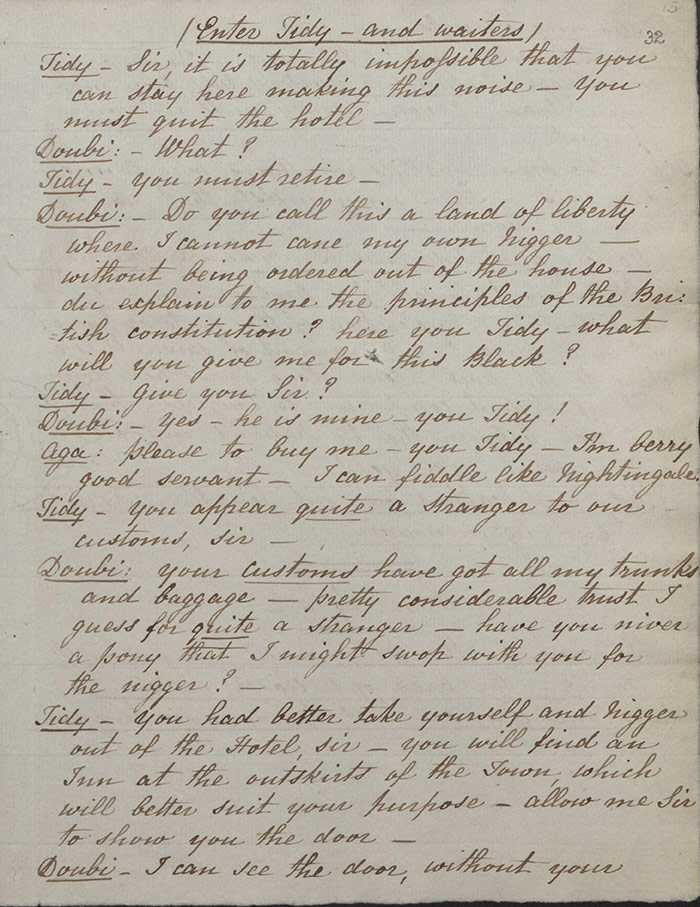 15
32
(Enter Tidy – and waiters)
Tidy – Sir, it is totally impossible that you
can stay here making this noise – you
must quit the hotel –
Doubi: – What?
Tidy – you must retire –
Doubi: – Do you call this a land of liberty
where I cannot cane my own Nigger –
without being ordered out of the house –
du explain to me the principles of the Bri:
=tish constitution? here you Tidy – what
will you give me for this Black?
Tidy – Give you Sir?
Doubi: – yes – he is mine – you Tidy!
Aga: please to buy me – you Tidy – I'm berry
good servant – I can fiddle like Nightingale.
Tidy – you appear quite a stranger to our
customs, sir –
Doubi: your customs have got all my trunks
and baggage – pretty considerable trust I
guess for quite a stranger – have you niver
a pony that I might swop with you for
the nigger? –
Tidy – you had better take yourself and Nigger
out of the Hotel, sir – you will find an
Inn at the outskirts of the Town, which
will better suit your purpose – allow me Sir
to show you the door –
Doubi – I can see the door, without your